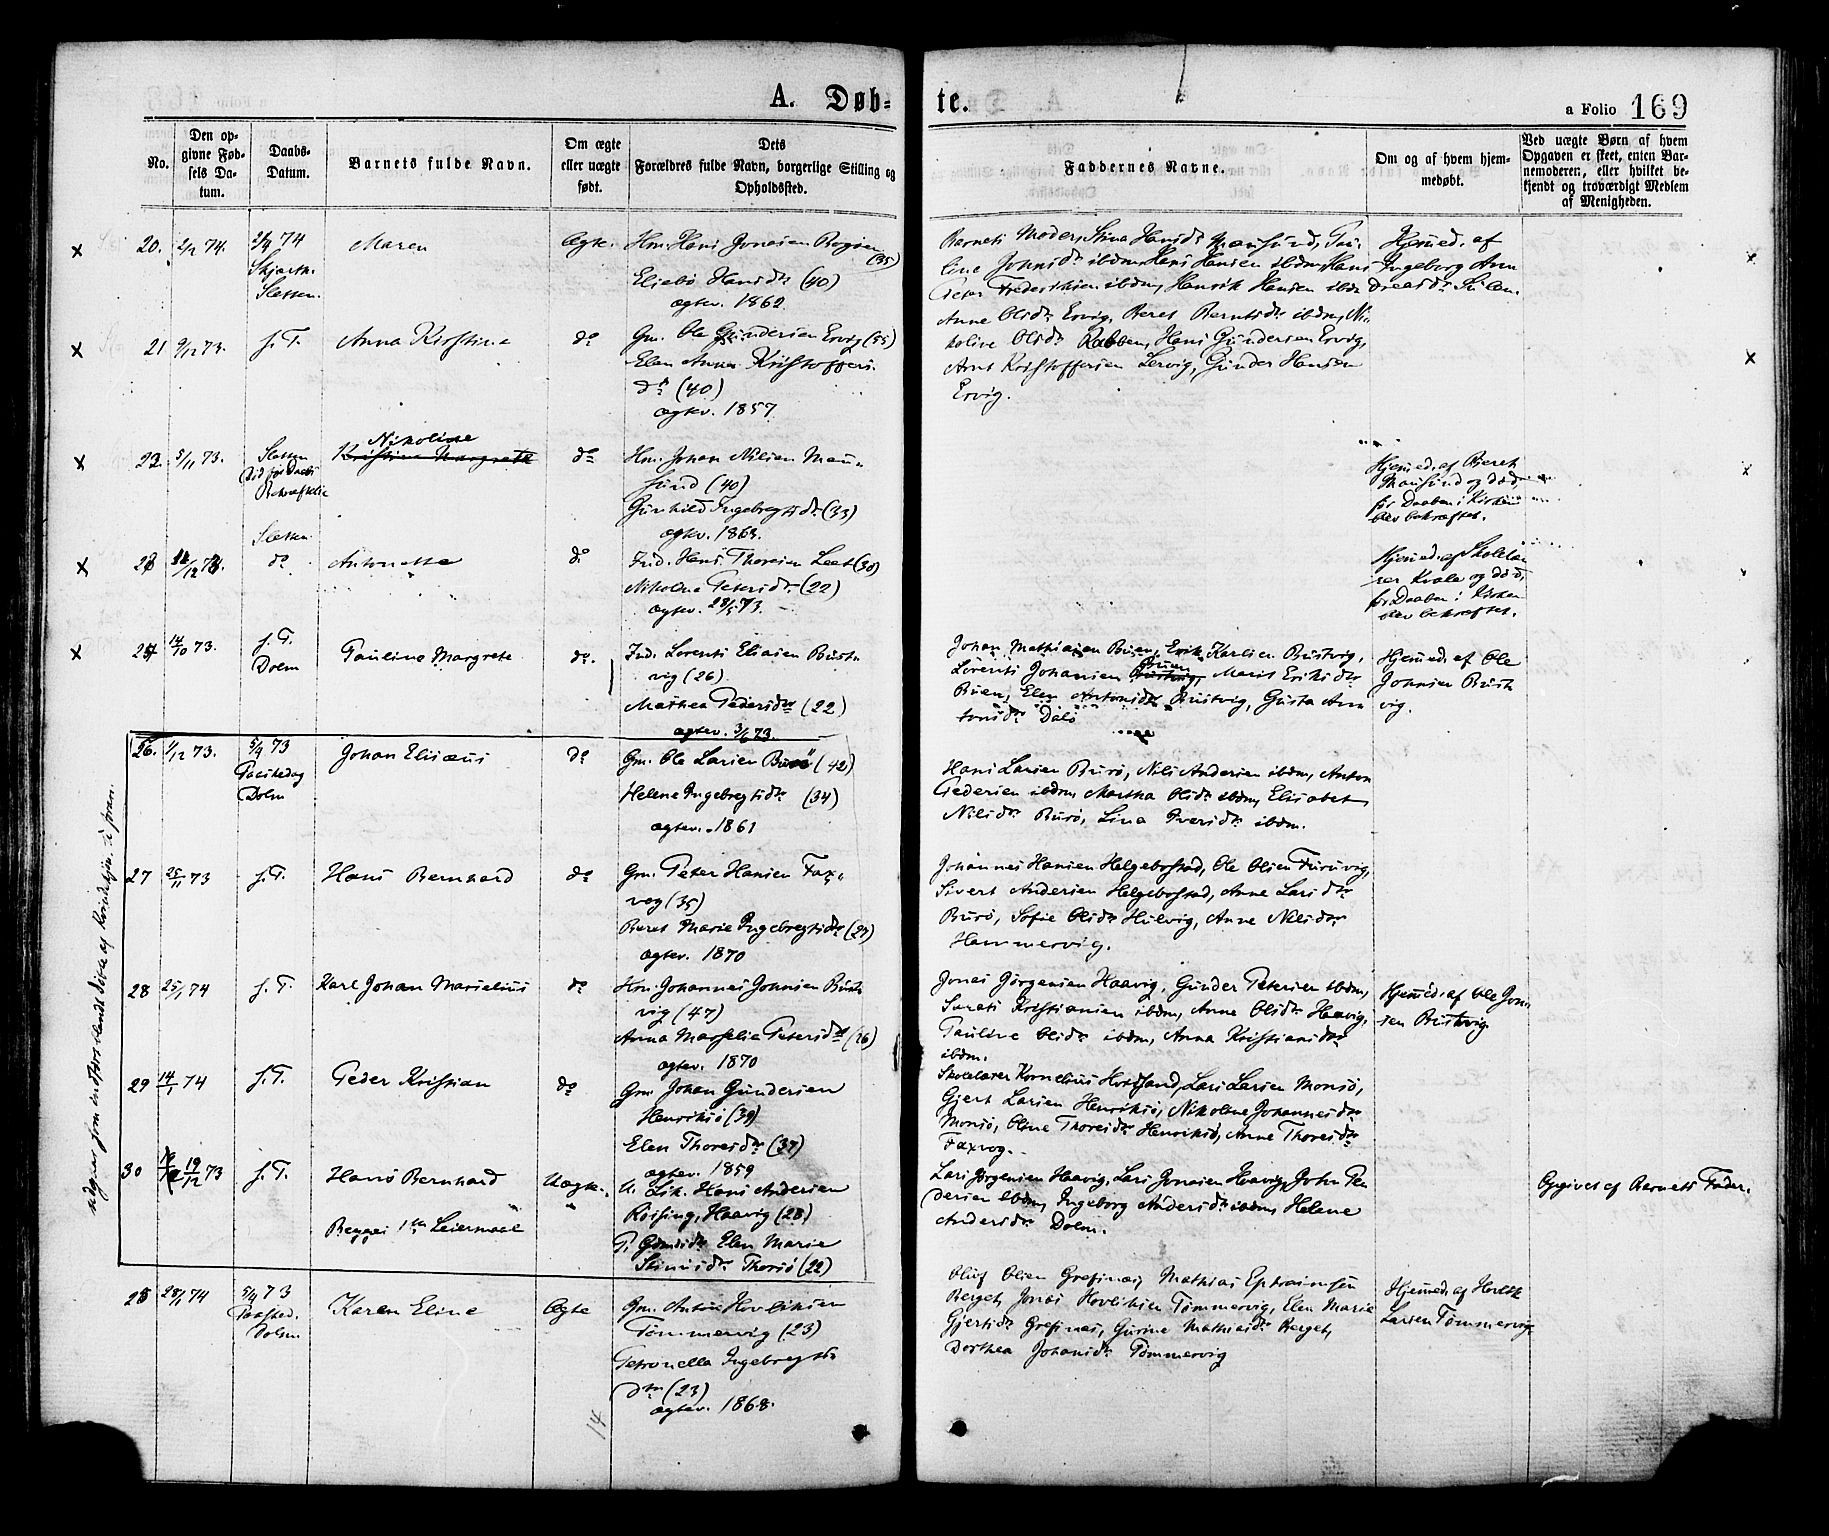 A. Døb-
te.
a Folio 169
No.
Den op-
givne Fød-
sels Da-
tum.
Daabs-
Datum.
Barnets fulde Navn.
Om ægte
eller uægte
født.
Dets
Forældres fulde Navn, borgerlige Stilling og
Opholdssted.
Faddernes Navne.
Om og af hvem hjem-
medøbt.
Ved uægte Børn af hvem
Opgaven er skeet, enten Bar-
nemoderen, eller hvilket be-
kjendt og troværdigt Medlem
af Menigheden.
20. 2/1 74. 74
Sletten.
Maren
Ægte.
Hm. Hans Jonsen (35)
Hansdr (40)
ægtev. 1862.
Barnets Moder, Stina Hansdr Mausund,
line Johnsdr ibdm, Hans Hansen ibdm, Hans
Peter Frederiksen ibdm, Henrik Hansen ibdm
Hjemmed. af
Ingeborg
21 9/12 73. s. D.
Anna Kirstine
do
Gm. Ole Gundersen Ervig (55)
Elen Anna Kristoffers-
dr (40)
ægtev. 1857
Anne Olsdr Ervig, Beret Berntsdr ibdm, Ni-
koline Olsdr Rabben, Hans Gundersen Ervig,
Arnt Kristoffersen Lervig, Gunder Hansen
Ervig.
5/11 73. Sletten
Nikoline
Kristina Margrete
do
Hm. Johan Nilsen Mau-
sund (40)
Gunhild Ingebregtsdr (33)
ægtev. 1863.
Hjemmed. af Beret
Mausund og død
før Daaben i Kirken
blev bekræftet.
Sletten
do
Antonette
do
Ind. Hans Thoresen (30)
Nikoline Petersdr (22)
ægtev. 73.
Hjemmed. af Skolelæ-
rer Kvale og død
før Daaben i Kirken
blev bekræftet.
14/10 73. s. D.
Dolm
Pauline Margrete
do.
Ind. Lorents Eliasen Bust-
vig (26)
Mathea Pedersdr (22)
ægtev. 3/6 73.
Johan Mathiasen Buen, Erik Karlsen Bustvig,
Lorents Johansen Bustvig, Buen Marit Eriksdr
Buen, Elen Antonsdr Bustvig, Gusta An-
tonsdr Dalø
Hjemmed. af Ole
Johnsen Bust-
vig.
26. 1/12 73. 5/4 73
Paaskedag
Dolm
Johan Elisæus
do
Gm. Ole Larsen Burø (42)
Helene Ingebregtsdr (34)
ægtev. 1861
Hans Larsen Burø, Nils Andersen ibdm, Anton
Pedersen ibdm, Martha Olsdr ibdm, Elisabet
Nilsdr Burø, Lina Iversdr ibdm.
27 25/11 73 s. D.
Hans Bernhard
do
Gm. Peter Hansen Fax-
vog (35)
Beret Marie Ingebregtsdr
ægtev. 1870
Johannes Hansen Helgebostad, Ole Olsen Furuvig,
Sivert Andersen Helgebostad, Anne Larsdr
Burø, Sofie Olsdr Hilvig, Anne Nilsdr
Hammervig.
28 25/1 74 s. D.
Karl Johan Marselius
do
Hm. Johannes Johnsen Bust-
vig (47)
Anna Marselie Petersdr (26)
ægtev. 1870
Jonas Jørgensen Haavig, Gunder Petersen ibdm,
Kristiansen ibdm, Anne Olsdr Haavig,
Pauline Olsdr ibdm, Anna Kristiansdr
ibdm.
Hjemmed. af Ole John-
sen Bustvig
29 14/1 74 s. D.
Peder Kristian
do
Gm. Johan Gundersen
Henriksø (39)
Elen Thoresdr (37)
ægtev. 1859
Skolelærer Kornelius, Lars Larsen Monsø,
Gjert Larsen Henriksø, Nikoline Johannesdr
Monsø, Oline Thoresdr Henriksø, Anne Thoresdr
Faxvog.
30 19/12 73 s. D.
Hans Bernhard
Begges 1ste Leiermaal
Uægte.
U. Hans Andersen
Røising, Haavig (28)
P. Elen Marie
Thorsø (22)
Lars Jørgensen Haavig, Lars Jonasen Haavig, John Pe-
dersen ibdm, Ingeborg Andersdr ibdm, Helene
Andersdr Dolm.
Opgivet af Barnets Fader.
25 28/1 74 5/4 73
Paasked.
Dolm
Karen Eline
Ægte
Gm. Anton Hovliksen
Tømmervig (23)
Petronella Ingebregts-
dtr (23)
ægtev. 1868.
Oluf Olsen Grefsnæs, Mathias Ephraimsen
Berget, Jonas Hovliksen Tømmervig, Elen Marie
Gjertsdr Grefsnæs, Gurine Mathiasdr Berget,
Dorthea Johansdr Tømmervig
Hjemmed. af
Larsen Tømmervig
14